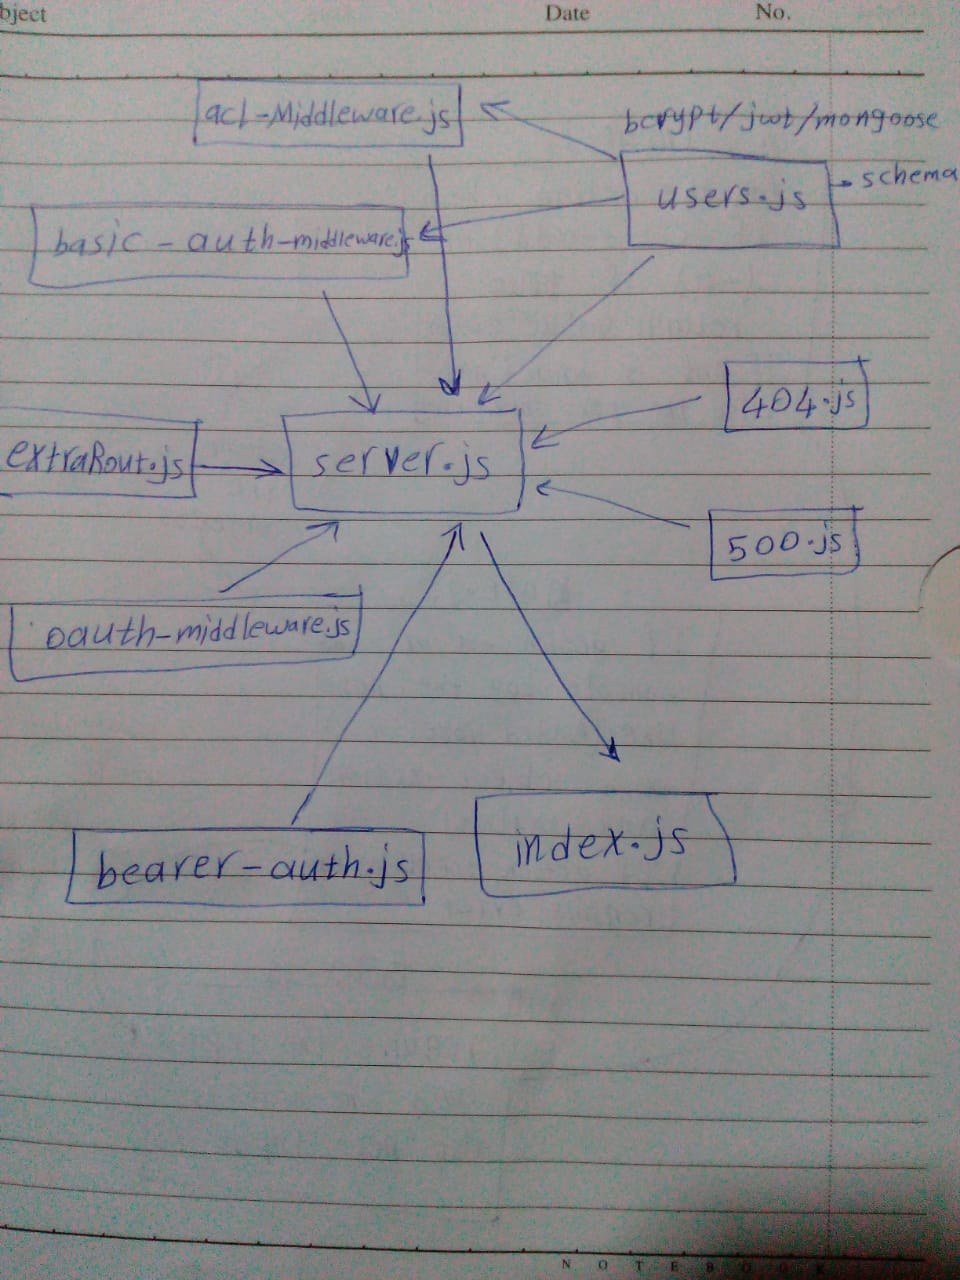 bject Date No.
acl-Middleware.js
bcrypt/jwt/mongoose
users.js
schema
basic-auth-middleware.js
404.js
extraRout.js
server.js
500.js
oauth-middleware.js
index.js
bearer-auth.js
N O T E B O O K